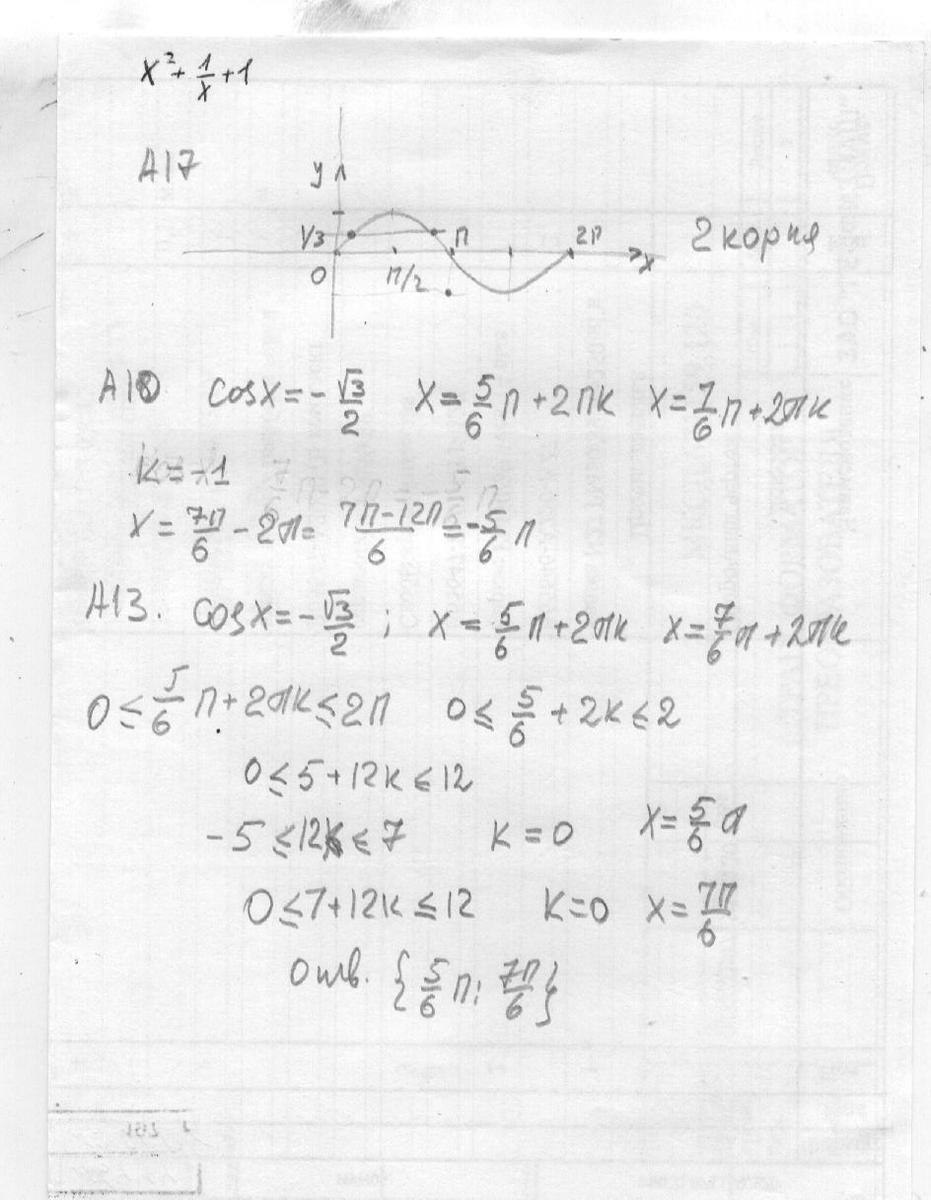 x² + 1/x + 1
A17
y
1/3
0
π/2
π
2π
x
2 корня
A18 cosx = -√3/2 x = 5/6 π + 2πk x = 7/6 π + 2πk
k = -1
x = 7π/6 - 2π = 7π-12π/6 = -5/6 π
A13. cosx = -√3/2 ; x = 5/6 π + 2πk x = 7/6 π + 2πk
0 ≤ 5/6 π + 2πk ≤ 2π 0 ≤ 5/6 + 2k ≤ 2
0 ≤ 5 + 12k ≤ 12
-5 ≤ 12k ≤ 7 k = 0 x = 5/6 π
0 ≤ 7 + 12k ≤ 12 k = 0 x = 7π/6
Отв. {5/6 π; 7π/6}